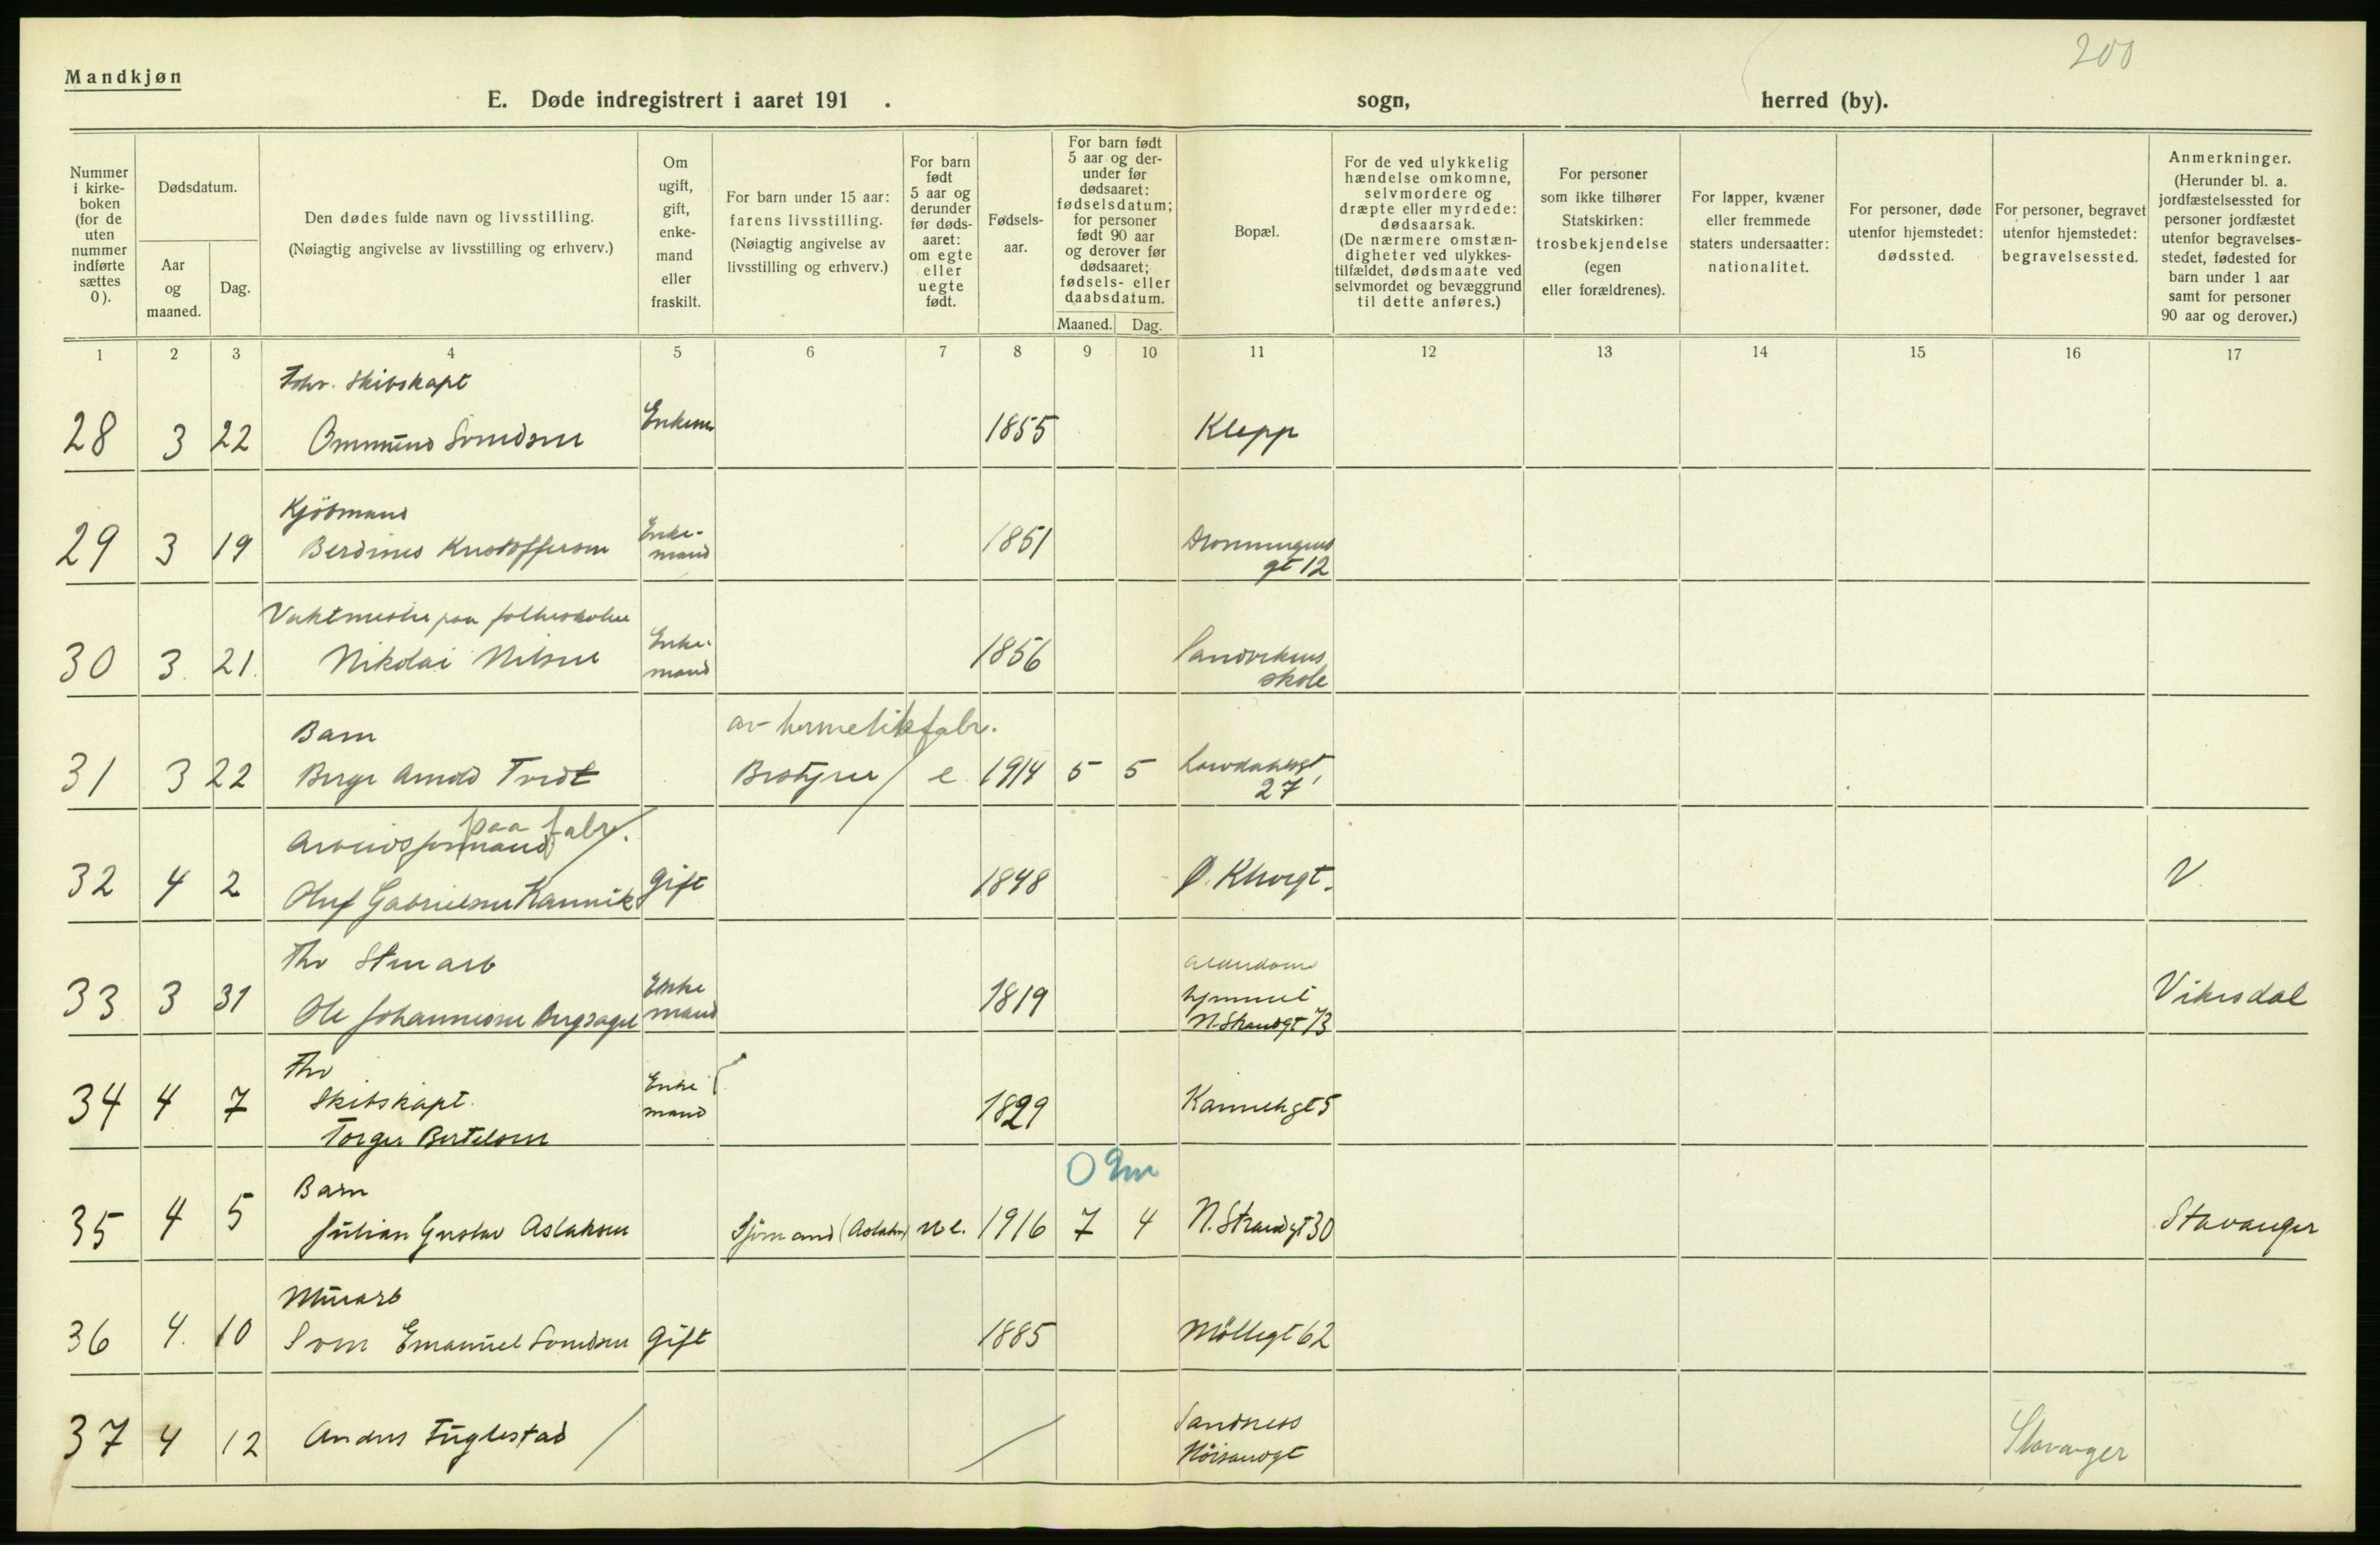 200
Mandkjøn
E. Døde indregistrert i aaret 191 . sogn, herred (by).
Nummer
i kirke-
boken
(for de
uten
nummer
indførte
sættes
0).
Dødsdatum.
Aar
og
maaned.
Dag.
Den dødes fulde navn og livsstilling.
(Nøiagtig angivelse av livsstilling og erhverv.)
Om
ugift,
gift,
enke-
mand
eller
fraskilt.
For barn under 15 aar:
farens livsstilling.
(Nøiagtig angivelse av
livsstilling og erhverv.)
For barn
født
5 aar og
derunder
før døds-
aaret:
om egte
eller
uegte
født.
Fødsels-
aar.
For barn født
5 aar og der-
under før
dødsaaret:
fødselsdatum;
for personer
født 90 aar
og derover før
dødsaaret;
fødsels- eller
daabsdatum.
Maaned. Dag.
Bopæl.
For de ved ulykkelig
hændelse omkomne,
selvmordere og
dræpte eller myrdede:
dødsaarsak.
(De nærmere omstæn-
digheter ved ulykkes-
tilfældet, dødsmaate ved
selvmordet og bevæggrund
til dette anføres.)
For personer
som ikke tilhører
Statskirken:
trosbekjendelse
(egen
eller forældrenes).
For lapper, kvæner
eller fremmede
staters undersaatter:
nationalitet.
For personer, døde
utenfor hjemstedet:
dødssted.
For personer, begravet
utenfor hjemstedet:
begravelsessted.
Anmerkninger.
(Herunder bl. a.
jordfæstelsessted for
personer jordfæstet
utenfor begravelses-
stedet, fødested for
barn under 1 aar
samt for personer
90 aar og derover.)
1 2 3 4 5 6 7 8 9 10 11 12 13 14 15 16 17
Skibskapt
28 3 22 Ommund Svendsen Enkem 1855 Klepp
Kjöbmand
29 3 19 Berdines Kristoffersen Enke-
mand 1851 Dronningens
gt 12
Vaktmester paa folkeskolen
30 3. 21. Nikolai Nilsen Enke-
mand 1856 Sandvikens
skole
Barn av hermetikfabr.
31 3 22 Birger Arnold Tvedt Bestyrer e. 1914 5 5
27
Arbeidsformand paa fabr.
32 4 2 Oluf Gabrielsen Kannik gift 1848 Ø. V.
Fhv
33 3 31 Ole Johannesen Enke
mand 1819 Alderdoms
hjemmet
N. Strandgt 73 Vikedal
Fhv
Skibskapt.
34 4 7 Torger Bertelsen Enke
mand 1829 Kannikgt 5
0 9m
Barn
35 4 5 Julian Gustav Aslaksen Sjömand (Aslaksen) u e. 1916 7 4 N. Strandgt 30 Stavanger
Murarb
36 4. 10 Sven Emanuel Svendsen gift 1885 Möllegt 62
37 4 12 Anders Fuglestad Sandness
Stavanger